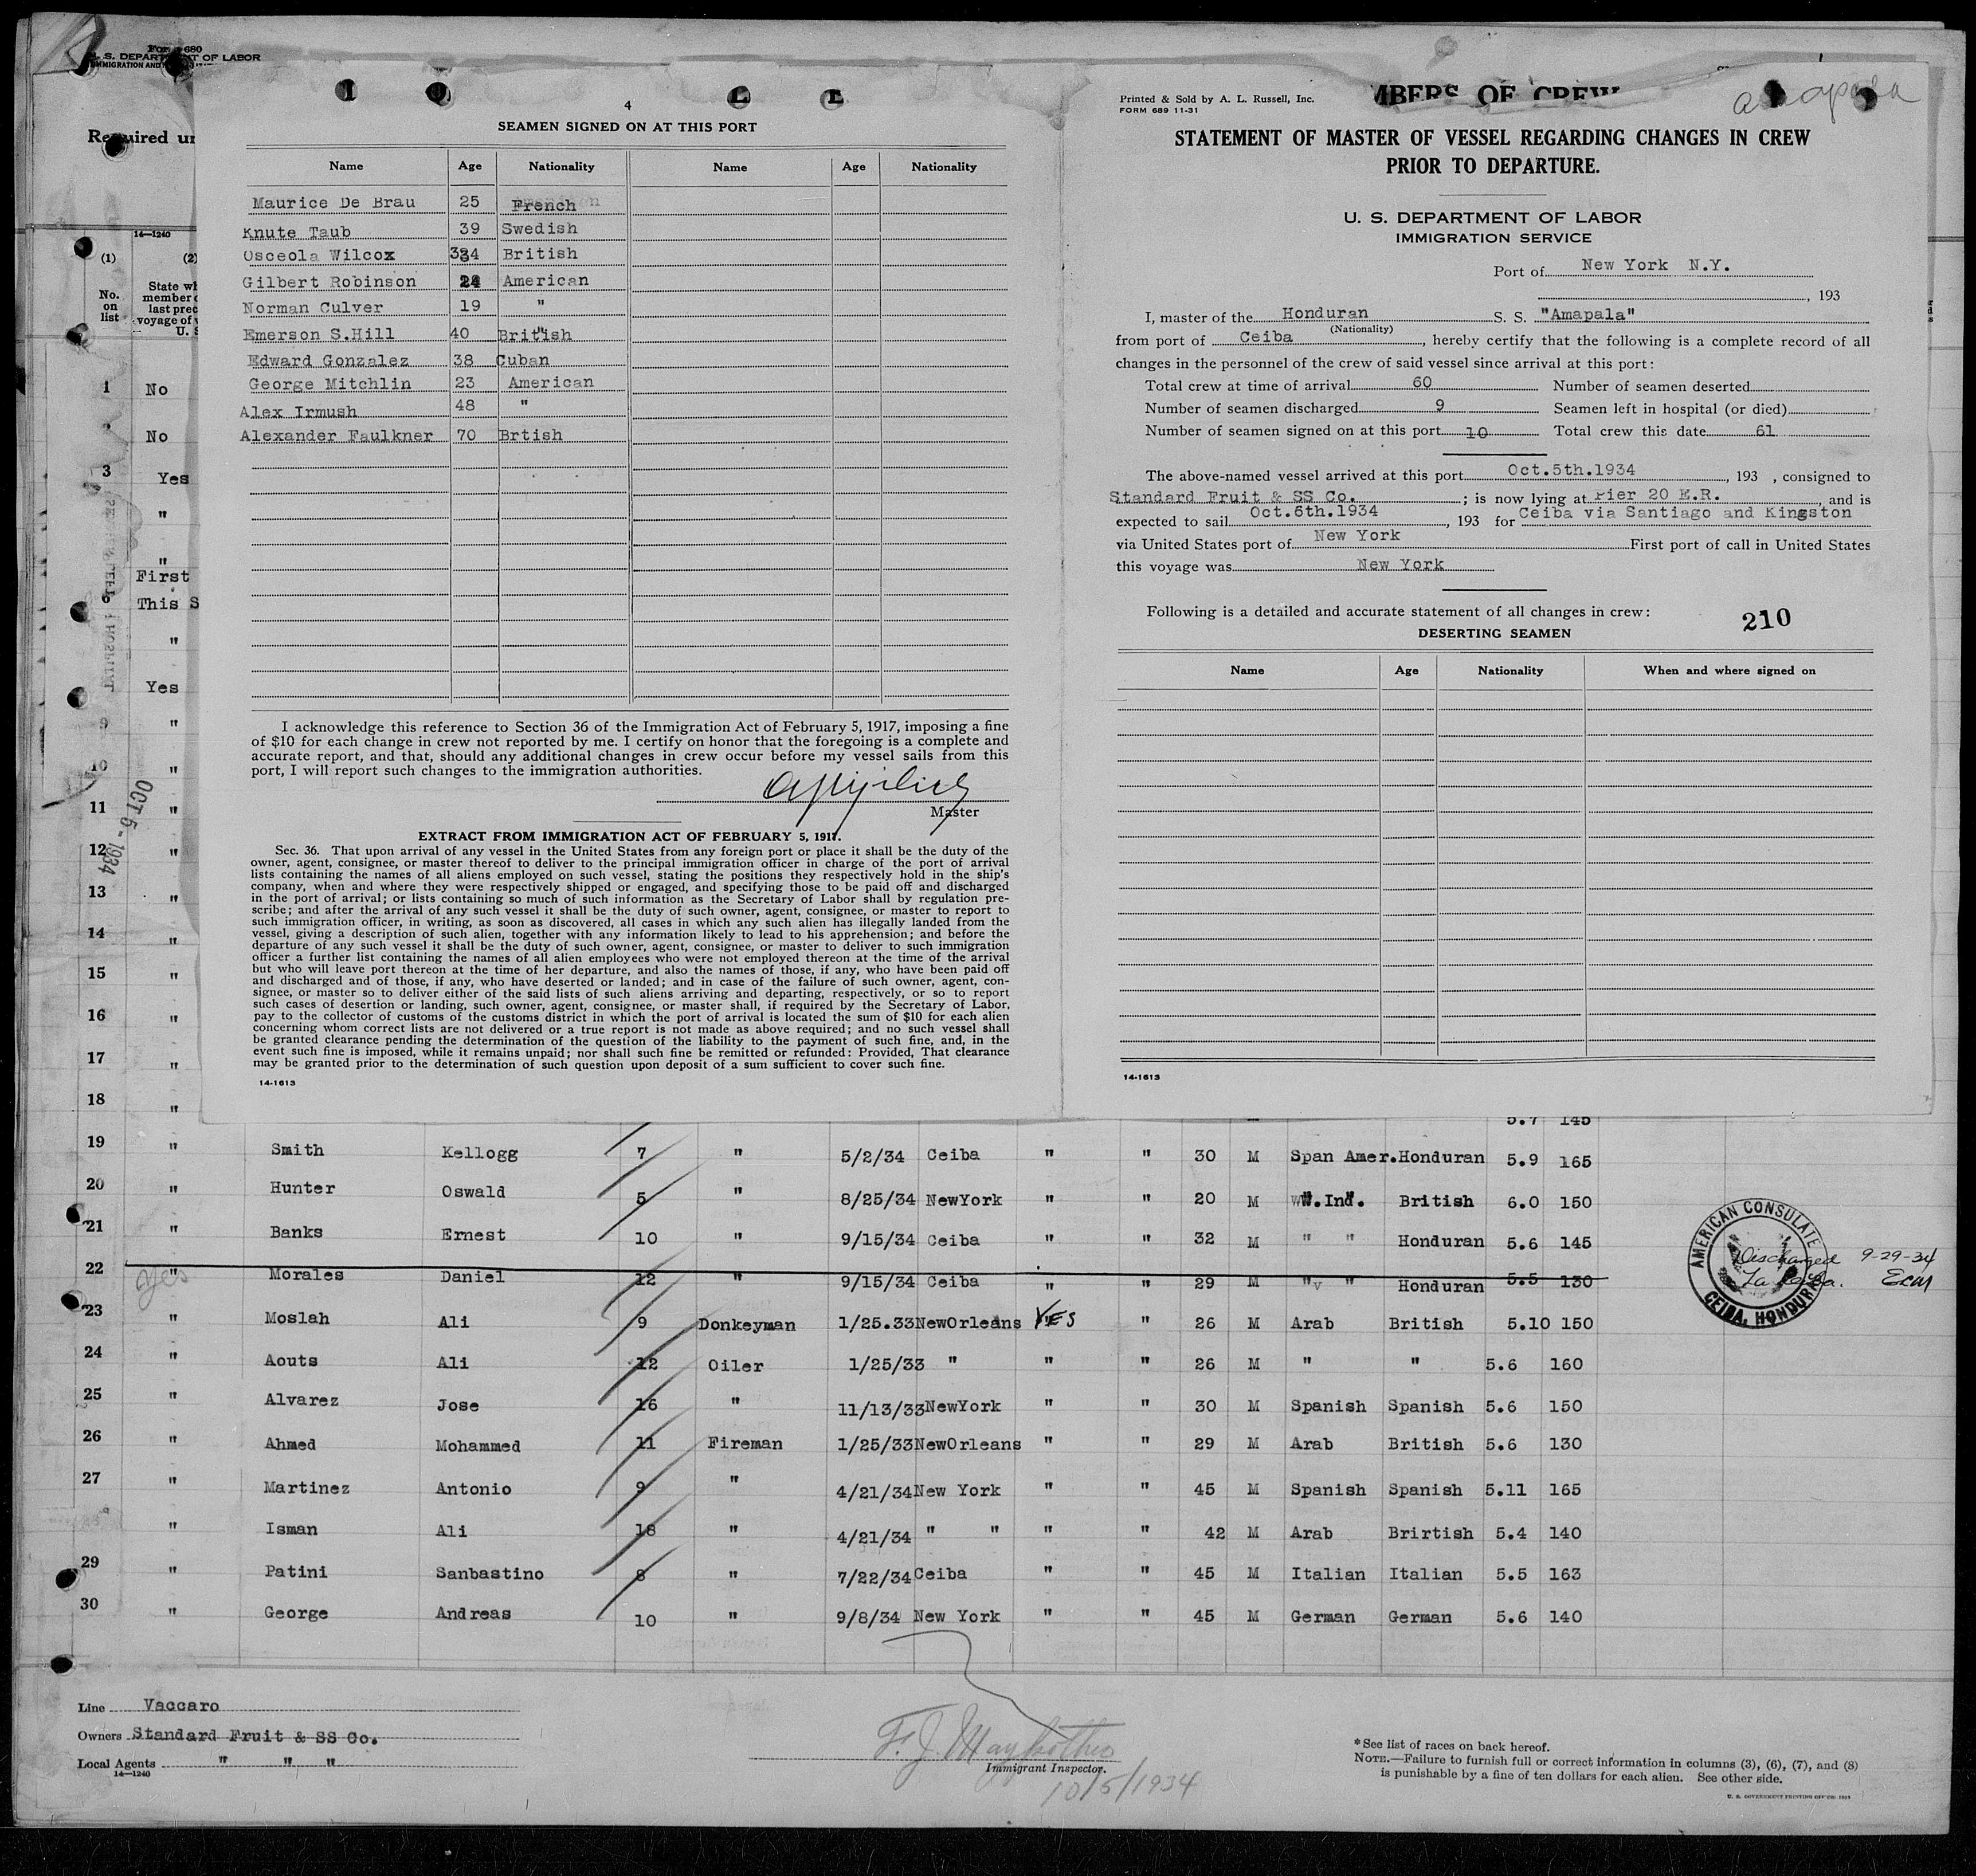 Form 680
U. S. DEPARTMENT OF LABOR
IMMIGRATION AND
Required un
14—1240
(1)
(2)
No.
on
list
State wh
member o
last prec
voyage of v
U. S
1 No
No
3 Yes
"
"
First
6 This S
"
Yes
9 "
10 "
11 "
12 "
13 "
14 "
15 "
16 "
17 "
18 "
OCT 5 - 1934
4
SEAMEN SIGNED ON AT THIS PORT
Name Age Nationality Name Age Nationality
Maurice De Brau 25 French
Knute Taub 39 Swedish
Osceola Wilcox 334 British
Gilbert Robinson 24 American
Norman Culver 19 "
Emerson S.Hill 40 British
Edward Gonzalez 38 Cuban
George Mitchlin 23 American
Alex Irmush 48 "
Alexander Faulkner 70 Brtish
I acknowledge this reference to Section 36 of the Immigration Act of February 5, 1917, imposing a fine
of $10 for each change in crew not reported by me. I certify on honor that the foregoing is a complete and
accurate report, and that, should any additional changes in crew occur before my vessel sails from this
port, I will report such changes to the immigration authorities.
Master
EXTRACT FROM IMMIGRATION ACT OF FEBRUARY 5, 1917.
Sec. 36. That upon arrival of any vessel in the United States from any foreign port or place it shall be the duty of the
owner, agent, consignee, or master thereof to deliver to the principal immigration officer in charge of the port of arrival
lists containing the names of all aliens employed on such vessel, stating the positions they respectively hold in the ship's
company, when and where they were respectively shipped or engaged, and specifying those to be paid off and discharged
in the port of arrival; or lists containing so much of such information as the Secretary of Labor shall by regulation pre-
scribe; and after the arrival of any such vessel it shall be the duty of such owner, agent, consignee, or master to report to
such immigration officer, in writing, as soon as discovered, all cases in which any such alien has illegally landed from the
vessel, giving a description of such alien, together with any information likely to lead to his apprehension; and before the
departure of any such vessel it shall be the duty of such owner, agent, consignee, or master to deliver to such immigration
officer a further list containing the names of all alien employees who were not employed thereon at the time of the arrival
but who will leave port thereon at the time of her departure, and also the names of those, if any, who have been paid off
and discharged and of those, if any, who have deserted or landed; and in case of the failure of such owner, agent, con-
signee, or master so to deliver either of the said lists of such aliens arriving and departing, respectively, or so to report
such cases of desertion or landing, such owner, agent, consignee, or master shall, if required by the Secretary of Labor,
pay to the collector of customs of the customs district in which the port of arrival is located the sum of $10 for each alien
concerning whom correct lists are not delivered or a true report is not made as above required; and no such vessel shall
be granted clearance pending the determination of the question of the liability to the payment of such fine, and, in the
event such fine is imposed, while it remains unpaid; nor shall such fine be remitted or refunded: Provided, That clearance
may be granted prior to the determination of such question upon deposit of a sum sufficient to cover such fine.
14-1613
Printed & Sold by A. L. Russell, Inc.
FORM 689 11-31
MBERS OF CREW
amapala
STATEMENT OF MASTER OF VESSEL REGARDING CHANGES IN CREW
PRIOR TO DEPARTURE.
U. S. DEPARTMENT OF LABOR
IMMIGRATION SERVICE
Port of New York N.Y.
, 193
I, master of the Honduran S. S. "Amapala"
(Nationality)
from port of Ceiba , hereby certify that the following is a complete record of all
changes in the personnel of the crew of said vessel since arrival at this port:
Total crew at time of arrival 60 Number of seamen deserted
Number of seamen discharged 9 Seamen left in hospital (or died)
Number of seamen signed on at this port 10 Total crew this date 61
The above-named vessel arrived at this port Oct.5th.1934 , 193 , consigned to
Standard Fruit & SS Co. ; is now lying at Pier 20 E.R. , and is
expected to sail Oct.6th.1934 , 193 for Ceiba via Santiago and Kingston
via United States port of New York First port of call in United States
this voyage was New York
Following is a detailed and accurate statement of all changes in crew:
210
DESERTING SEAMEN
Name Age Nationality When and where signed on
14-1613
5.7 145
19 " Smith Kellogg 7 " 5/2/34 Ceiba " " 30 M Span Amer. Honduran 5.9 165
20 " Hunter Oswald 5 " 8/25/34 NewYork " " 20 M W.Ind. British 6.0 150
21 " Banks Ernest 10 " 9/15/34 Ceiba " " 32 M " " Honduran 5.6 145
22 " Morales Daniel 12 " 9/15/34 Ceiba " " 29 M " " Honduran 5.5 130
yes
AMERICAN CONSULATE
CEIBA, HONDURAS
Discharged 9-29-34
La Ceiba.
23 " Moslah Ali 9 Donkeyman 1/25.33 NewOrleans YES " 26 M Arab British 5.10 150
24 " Aouts Ali 12 Oiler 1/25/33 " " " 26 M " " 5.6 160
25 " Alvarez Jose 16 " 11/13/33 NewYork " " 30 M Spanish Spanish 5.6 150
26 " Ahmed Mohammed 11 Fireman 1/25/33 NewOrleans " " 29 M Arab British 5.6 130
27 " Martinez Antonio 9 " 4/21/34 New York " " 45 M Spanish Spanish 5.11 165
" Isman Ali 18 " 4/21/34 " " " " 42 M Arab Brirtish 5.4 140
29 " Patini Sanbastino 8 " 7/22/34 Ceiba " " 45 M Italian Italian 5.5 163
30 " George Andreas 10 " 9/8/34 New York " " 45 M German German 5.6 140
Line Vaccaro
Owners Standard Fruit & SS Co.
Local Agents " " "
14—1240
Immigrant Inspector.
10/5/1934
* See list of races on back hereof.
NOTE.—Failure to furnish full or correct information in columns (3), (6), (7), and (8)
is punishable by a fine of ten dollars for each alien. See other side.
U. S. GOVERNMENT PRINTING OFFICE: